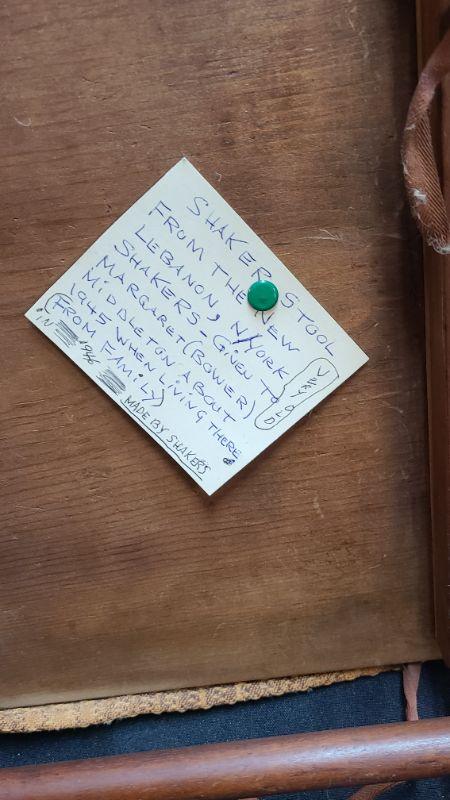 SHAKER STOOL
FROM THE NEW
LEBANON, N/YORK
SHAKERS - GIVEN TO
MARGARET (BOWER)
MIDDLETON ABOUT
1945 WHEN LIVING THERE
(FROM FAMILY)
IN 1946
MADE BY SHAKERS
VERY
OLD